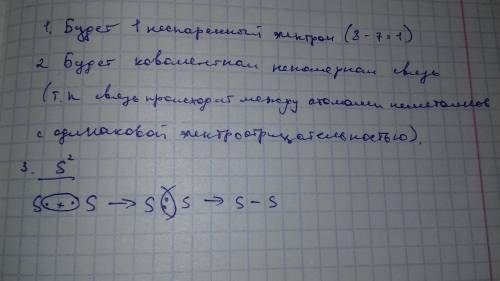 1. Будет 1 неспаренный электрон (8-7=1)
2 Будет ковалентная неполярная связь
(т.к связь происходит между атомами неметаллов
с одинаковой электроотрицательностью).
3. S²
S • + • S → S : S → S – S